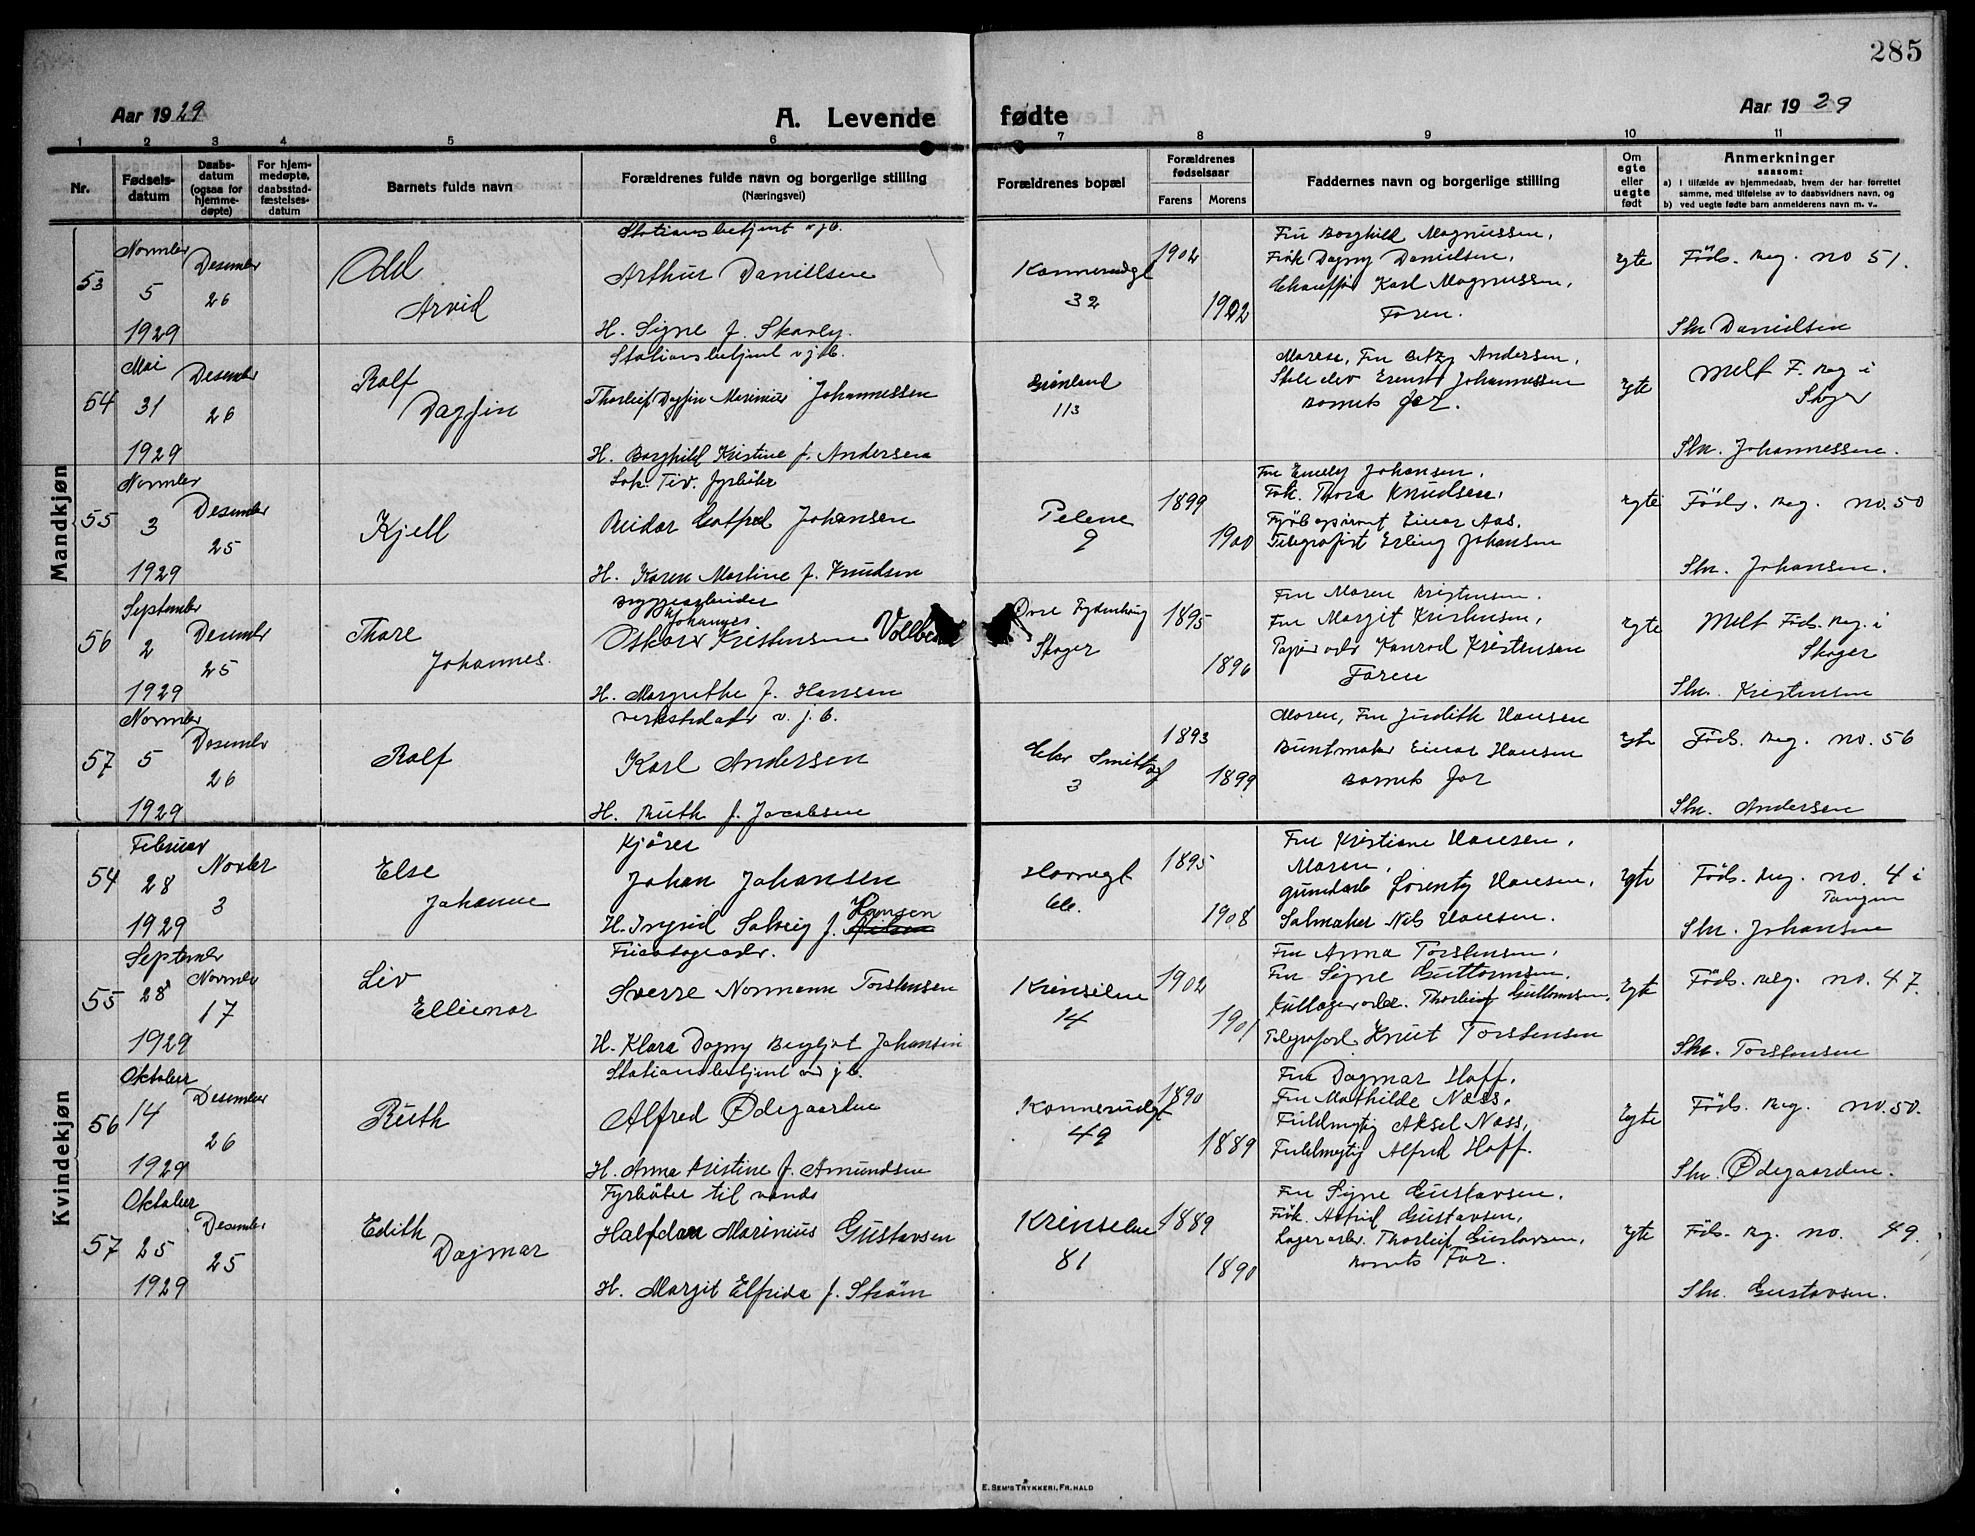 285
Aar 1929
A. Levende fødte
Aar 1929
1 2 3 4 5 6 7 8 9 10 11
Nr.
Fødsels-
datum
Daabs-
datum
(ogsaa for
hjemme-
døpte)
For hjem-
medøpte,
daabsstad-
fæstelses-
datum
Barnets fulde navn
Forældrenes fulde navn og borgerlige stilling
(Næringsvei)
Forældrenes bopæl
Forældrenes
fødselsaar
Farens Morens
Faddernes navn og borgerlige stilling
Om
egte
eller
uegte
født
Anmerkninger
saasom:
a) I tilfælde av hjemmedaab, hvem der har forrettet
samme, med tilføielse av to daabsvidners navn, og
b) ved uegte fødte barn anmelderens navn m. v..
Mandkjøn
53
Novmber
5
1929
Desember
26
Odd
Arvid
Stationsbetjent v j b.
Arthur Danielsen
H. Signe f. Skarby.
Konnerudgt
32
1902
1902
Fru Borghild Magnussen,
Frøk Dagny Danielsen,
Chauffør Karl Magnussen,
Faren.
egte
Føds. Reg. no 51.
Skr Danielsen
54
Mai
31
1929
Desember
26
Rolf
Dagfin
Stationsbetjent v j b.
Thorleif Dagfin Marinius Johannessen
H. Borghild Kristine f. Andersen
Grønland
113
Moren, Fru Betzy Andersen,
Johannessen
Barnets far.
egte
Melt F. Reg i
Skoger
Skr. Johannessen.
55
Novmber
3
1929
Desember
25
Kjell
Lok. Tiv. fyrbøter
Reidar Gotfred Johansen
H. Karen Martine f. Knudsen
Pelene
9
1899
1900
Fru Emely Johansen,
Frk. Thora Knudsen,
Einar Aas.
Telegrafist Erling Johansen
egte
Føds. Reg. no. 50
Skr. Johansen.
56
September
2
1929
Desember
25
Thore
Johannes
Bryggearbeider
Johannes
Oskar Kristensen
H. Margrethe f. Hansen
Øvre Fydenhaug
Skoger
1895
1896
Fru Maren Kristensen.
Fru Margit Kristensen,
Konrad Kristensen
Faren
egte
Melt Føds. Reg. i
Skoger
Skr. Kristensen
57
Novmber
5
1929
Desember
26
Rolf
verkstedarb v. j. b.
Karl Andersen
H. Ruth f. Jacobsen
3
1893
1899
Moren, Fru Judith Hansen
Buntmaker Einar Hansen
Barnets far
egte
Føds. Reg. no. 56
Skr. Andersen
Kvindekjøn
54
Februar
28
1929
Novber
3
Else
Johanne
Kjører
Johan Johansen
H. Ingrid Solveig f. Hansen
Havnegt
66.
1895
1908
Fru Kristiane Hansen,
Moren,
Hansen,
Salmaker Nils Hansen.
egte
Føds. Reg. no. 4 i
Tangen
Skr. Johansen
55
September
28
1929
Novmber
17
Liv
Ellienor
Sverre Normann Torstensen
H. Klara Dagny Bergljot Johansen
Krinselen
14
1902
1901
Fru Anna Torstensen,
Fru Signe Guttormsen,
Thorleif Guttormsen,
Knut Torstensen
egte
Føds. Reg. no. 47.
Skr. Torstensen
56
Oktober
14
1929
Desember
26
Ruth
Stationsbetjent ved j b.
Alfred Ødegaarden
H. Anna Kristine f. Amundsen
Konnerudgt
49
1890
1889
Fru Dagmar Hoff,
Fru Mathilde Næss,
Fuldmegtig Aksel Næss,
Fuldmegtig Alfred Hoff.
egte
Føds. Reg. no. 50.
Skr. Ødegaarden.
57
Oktober
25
1929
Desember
25
Edith
Dagmar
Fyrbøter til vands
Halfdan Marinius Gustavsen
H. Margit Elfrida f. Strøm
Krinselen
81
1889
1890
Fru Signe Gustavsen,
Frøk. Astrid Gustavsen,
Lagerarb. Thorleif Gustavsen,
Barnets Far.
egte
Føds. Reg. no. 49.
Skr. Gustavsen.
E. Sem's Trykkeri, Fr.hald